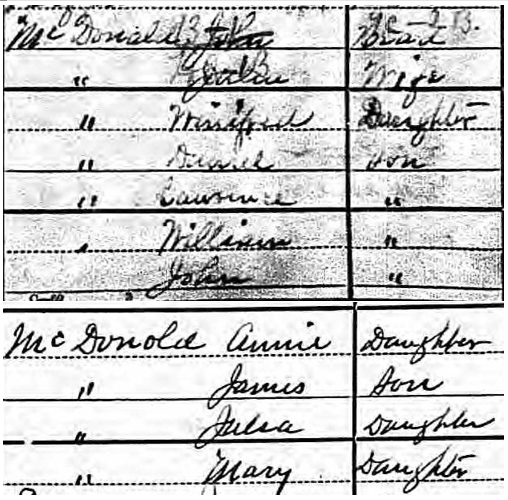 Mc Donald John Head
" Julia Wife
" Winifred Daughter
" Daniel Son
" Lawrence "
" William "
John "
Mc Donald Annie Daughter
" James Son
" Julia Daughter
" Mary Daughter